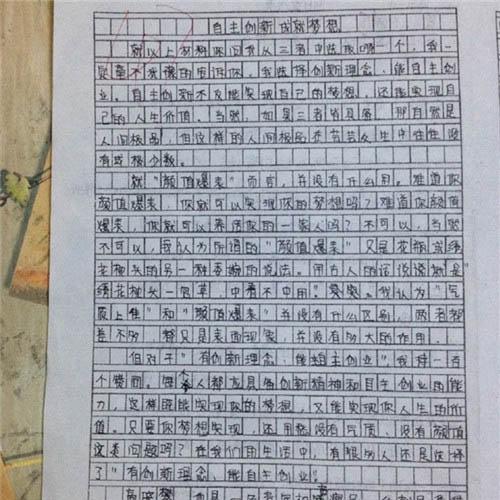 自主创新成就梦想
就以上材料你问我从三者中选取哪一个,我一
定毫不犹豫的告诉你,我选择创新理念、能自主创
业。自主创新不仅能实现自己的梦想,还能实现自
己的人生价值。当然,如是三者皆具备,那自然是
人间极品,但这样的人间极品在芸芸众生中往往没
有或极少数。
就“颜值爆表”而言,并没有什么用。难道你
颜值爆表,你就可以实现你的梦想吗?难道你颜值
爆表,你就可以养活你的一家人吗?不可以,当然
不可以,我认为所谓的“颜值爆表”只是花瓶或绣
花枕头的另一种委婉的说法。用古人的话说就是“
绣花枕头一包草,中看不中用”。我认为“气
质上佳”和“颜值爆表”并没有什么区别,两者都
差不多,都只是表面现象,并没有多大的作用。
但对于“有创新理念、能自主创业”我持一百
个赞同。每个人都应具备创新精神和自主创业的能
力,这样既能实现你的梦想,又能实现你人生的价
值。只要你梦想实现,还用愁没有气质、没有颜值
这类问题吗?在我们的生活中,有很多人还是选择
了“有创新理念,能自主创业”。